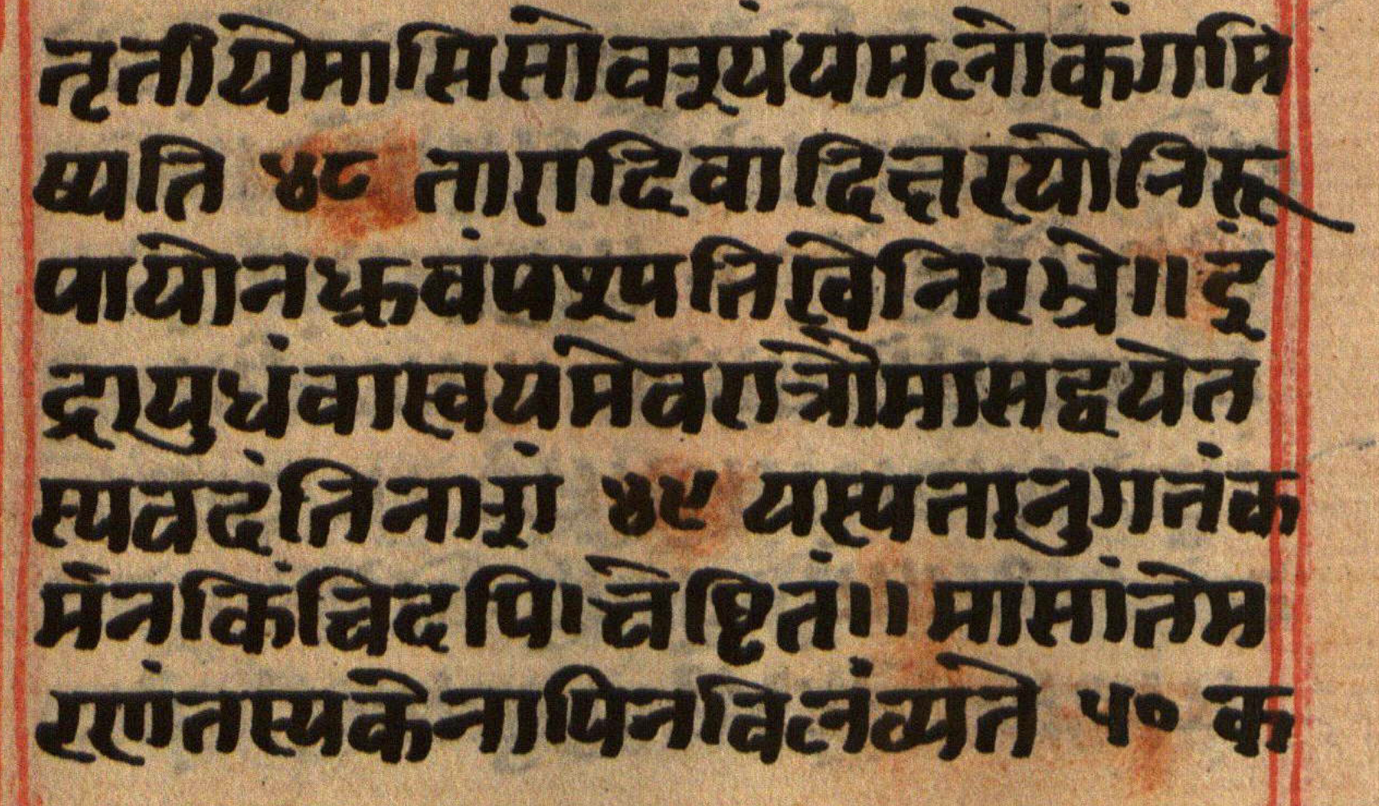 तृतीयेमासिसोवश्यंयमलोकंगमि
ष्यति ४८ तारादिवादित्तरयोनिरू
पायोनध्रुवंपश्पतिखेनिरभ्रे॥ इं
द्रायुधंवास्वयमेवरात्रौमासद्वयेत
स्यवदंतिनाशं ४९ यस्यत्तानुगतंक
र्मनकिंचिदपि।चेष्टितं॥ मासांतेम
रणंतस्यकेनापिनविलंव्यते ५० क